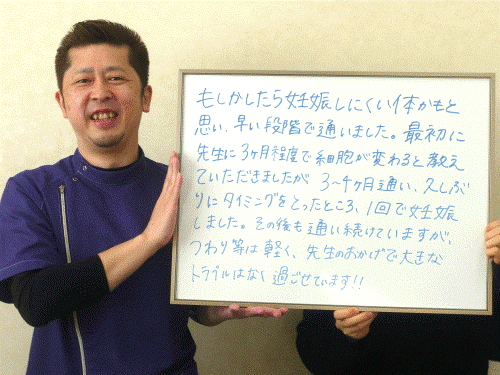 もしかしたら妊娠しにくい体かもと
思い、早い段階で通いました。最初に
先生に3ヶ月程度で細胞が変わると教え
ていただきましたが 3〜4ヶ月通い、久しぶ
りにタイミングをとったところ、1回で妊娠
しました。その後も通い続けていますが、
つわり等は軽く、先生のおかげで大きな
トラブルはなく過ごせています!!